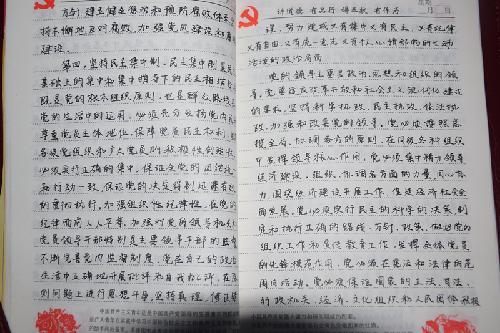 方针，建立健全惩治和预防腐败体系
持不懈地反对腐败，加强党风建设和廉
建设。
第四，坚持民主集中制。民主集中制是民
基础上的集中和集中指导下的民主相结
既是党的根本组织原则，也是群众路线
党的生活中的运用。必须充分发扬党内
尊重党员主体地位，保障党员民主权利，
各级党组织和广大党员的积极性创造性
必须实行正确的集中，保证全党的团结统
和行动一致，保证党的决定得到迅速有效
彻执行。加强组织性纪律性，在党的
纪律面前人人平等。加强对党的领导机关
党员领导干部特别是主要领导干部的监督
不断完善党内监督制度。党在自己的政治
生活中正确地开展批评和自我批评，在原
则问题上进行思想斗争，坚持真理，修正错
误。努力造成又有集中又有民主，又有纪律
又有自由，又有统一意志又有个人心情舒畅的生动
活泼的政治局面。
党的领导主要是政治、思想和组织的领
导。党要适应改革开放和社会主义现代化建设
的要求，坚持科学执政、民主执政、依法执
政，加强和改善党的领导。党必须按照总
揽全局、协调各方的原则，在同级各种组织
中发挥领导核心作用。党必须集中精力领导
经济建设，组织、协调各方面的力量，同心协
力，围绕经济建设开展工作，促进经济社会全
面发展。党必须实行民主的科学的决策，制
定和执行正确的路线、方针、政策，做好党的
组织工作和宣传教育工作，发挥全体党员
的先锋模范作用。党必须在宪法和法律的范
围内活动。党必须保证国家的立法、司法、
行政机关，经济、文化组织和人民团体积极